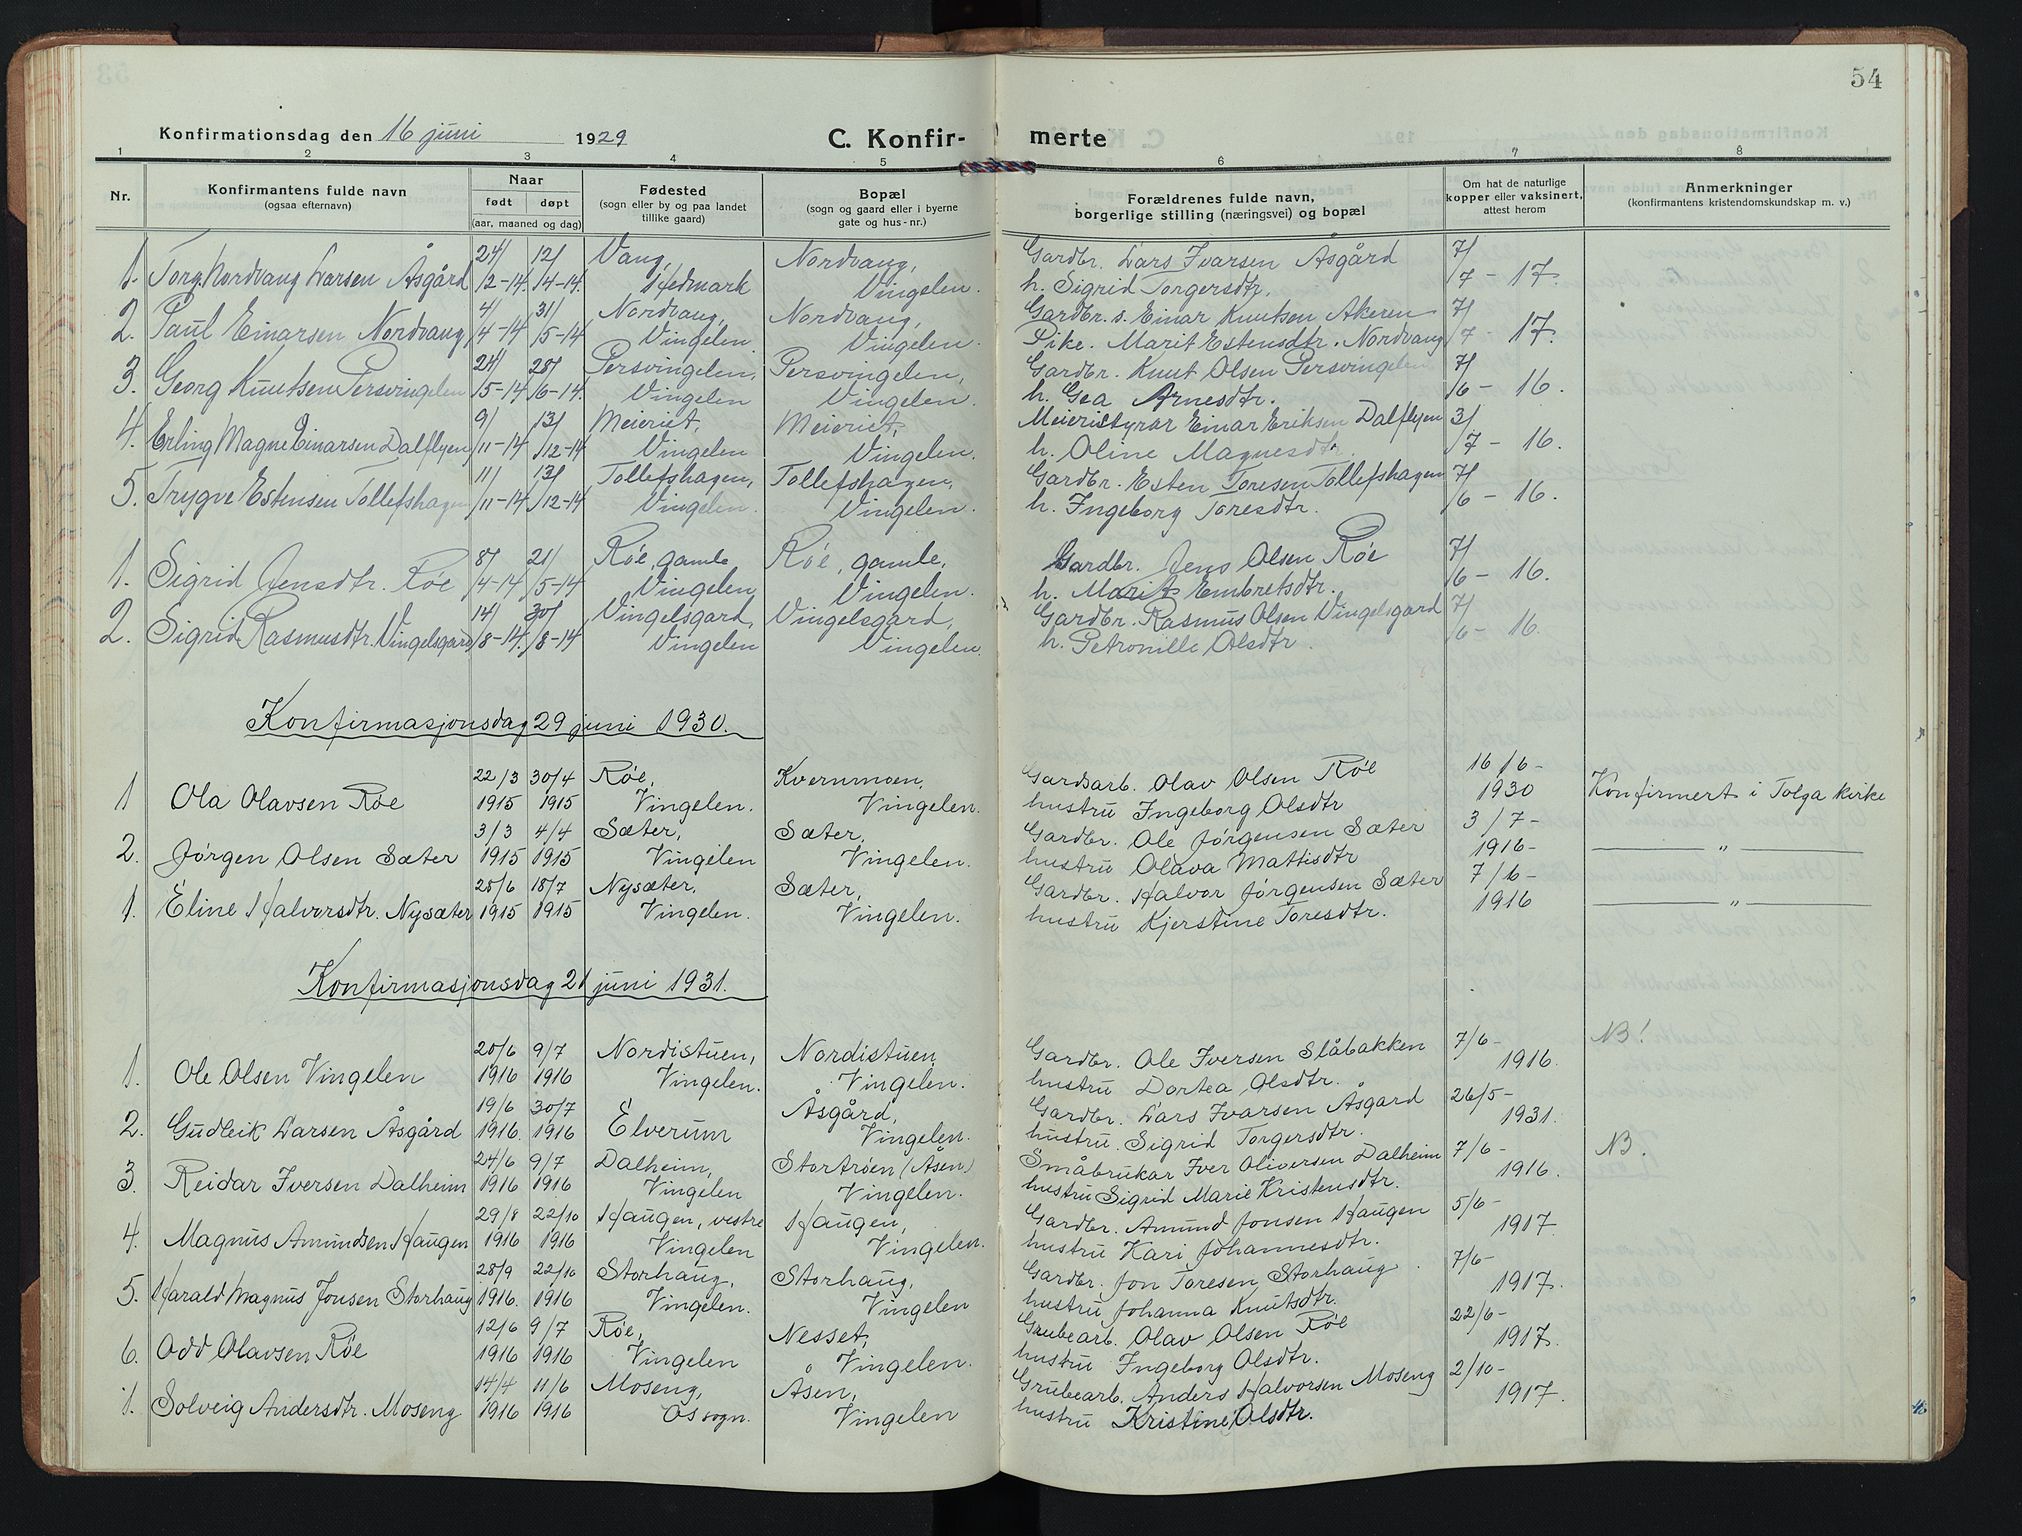 54
Konfirmationsdag den 16 juni 1929
C. Konfirmerte
1 2 3 4 5 6 7 8
Nr. | Konfirmantens fulde navn (ogsaa efternavn) | Naar født døpt (aar, maaned og dag) | Fødested (sogn eller by og paa landet tillike gaard) | Bopæl (sogn og gaard eller i byerne gate og hus-nr.) | Forældrenes fulde navn, borgerlige stilling (næringsvei) og bopæl | Om hat de naturlige kopper eller vaksinert, attest herom | Anmerkninger (konfirmantens kristendomskundskap m. v.)
1. Torg. Nordvang Larsen Åsgård | 24/12-14. | 12/14-14. | Vang, Hedmark | Nordvang, Vingelen. | Gardbr. Lars Ivarsen Åsgård h. Sigrid Torgersdtr. | 7/7-17.
2. Paul Einarsen Nordvang | 4/4-14 | 31/5-14 | Nordvang, Vingelen | Nordvang, Vingelen. | Gardbr. s. Einar Knutsen Akeren Pike. Marit Estensdtr. Nordvang | 7/7-17.
3. Georg Knutsen Persvingelen | 24/5-14 | 28/6-14. | Persvingelen, Vingelen | Persvingelen, Vingelen. | Gardbr. Knut Olsen Persvingelen h. Gea Arnesdtr. | 7/6-16.
4. Erling Magne Einarsen Dalflyen | 9/11-14 | 13/12-14 | Meieriet, Vingelen | Meieriet, Vingelen. | Meieristyrar Einar Eriksen Dalflyen h. Oline Magnesdtr. | 3/7-16.
5. Trygve Estensen Tollefshagen | 11/11-14 | 13/12-14 | Tollefshagen, Vingelen. | Tollefshagen, Vingelen. | Gardbr. Esten Toresen Tollefshagen h. Ingeborg Toresdtr. | 7/6-16.
1. Sigrid Jensdtr. Røe | 8/4-14 | 21/5-14 | Røe, gamle Vingelen | Røe, gamle, Vingelen. | Gardbr. Jens Olsen Røe h. Marit Embretsdtr. | 7/6-16.
2. Sigrid Rasmusdtr. Vingelsgard | 14/8-14. | 30/8-14 | Vingelsgard, Vingelen | Vingelsgard, Vingelen. | Gardbr. Rasmus Olsen Vingelsgard h. Petronille Olsdtr. | 7/6-16.
Konfirmasjonsdag 29 juni 1930.
1 Ola Olavsen Røe | 22/3 1915 | 30/4 1915 | Røe, Vingelen. | Kvernmoen, Vingelen. | Gardsarb. Olav Olsen Røe hustru Ingeborg Olsdtr | 16/6-1930 | Konfirmert i Tolga kirke
2. Jørgen Olsen Sæter | 3/3 1915 | 4/4 1915 | Sæter, Vingelen | Sæter, Vingelen. | Gardbr. Ole Jørgensen Sæter hustru Olava Mattisdtr | 3/7-1916- | — " —
1. Eline Halvorsdtr. Nysæter | 25/6 1915 | 18/7 1915 | Nysæter, Vingelen. | Sæter, Vingelen. | Gardbr. Halvor Jørgensen Sæter hustru Kjerstine Toresdtr. | 7/6-1916 | — " —
Konfirmasjonsdag 21 juni 1931.
1. Ole Olsen Vingelen | 20/6 1916 | 9/7 1916 | Nordistuen, Vingelen. | Nordistuen Vingelen. | Gardbr. Ole Iversen Slåbakken hustru Dortea Olsdtr. | 7/6-1916. | NB!
2. Gudleik Larsen Åsgård | 19/6 1916. | 30/7 1916 | Elverum | Åsgård, Vingelen. | Gardbr. Lars Ivarsen Åsgard hustru Sigrid Torgersdtr. | 26/5-1931.
3. Reidar Iversen Dalheim | 24/6 1916 | 9/7 1916 | Dalheim, Vingelen | Stortrøen (Åsen) Vingelen. | Småbrukar Iver Oliversen Dalheim hustru Sigrid Marie Kristensdtr. | 7/6-1916. | NB.
4. Magnus Amundsen Haugen | 29/8 1916 | 22/10 1916 | Haugen, vestre Vingelen | Haugen, Vingelen. | Gardbr. Amund Jonsen Haugen hustru Kari Johannesdtr. | 5/6-1917.
5. Harald Magnus Jonsen Storhaug | 28/9 1916. | 22/10 1916 | Storhaug, Vingelen. | Storhaug, Vingelen | Gardbr. Jon Toresen Storhaug hustru Johanna Knutsdtr. | 7/6-1917.
6. Odd Olavsen Røe | 12/6 1916 | 9/7 1916 | Røe, Vingelen | Nesset, Vingelen. | Grubearb. Olav Olsen Røe hustru Ingeborg Olsdtr. | 22/6-1917.
1. Solveig Andersdtr. Moseng | 14/4 1916 | 11/6 1916 | Moseng, Os sogn. | Åsen, Vingelen | Grubearb. Anders Halvorsen Moseng hustru Kristine Olsdtr. | 2/10-1917.